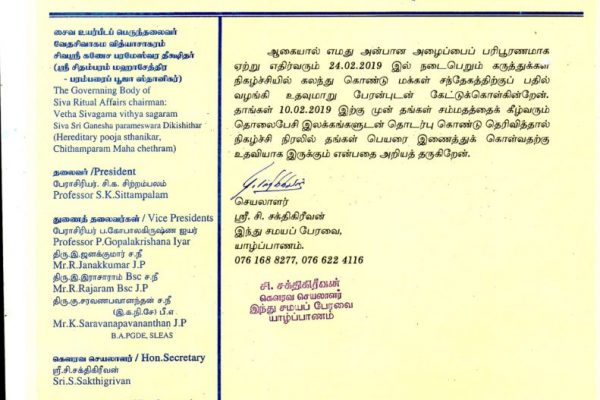 சைவ உயர்பீடப் பெருந்தலைவர்
வேதசிவாகம வித்யாசாகரம்
சிவஸ்ரீ கணேச பரமேஸ்வர தீக்ஷிதர்
(ஸ்ரீ சிதம்பரம் மஹாசேத்திர
- பரம்பரைப் பூஜா ஸ்தானிகர்)
The Governning Body of
Siva Ritual Affairs chairman:
Vetha Sivagama vithya sagaram
Siva Sri Ganesha parameswara Dikishithar
(Hereditary pooja sthanikar,
Chithamparam Maha chethram)
தலைவர் /President
பேராசிரியர். சி.க. சிற்றம்பலம்
Professor S.K.Sittampalam
துணைத் தலைவர்கள் / Vice Presidents
பேராசிரியர் ப.கோபாலகிருஷ்ண ஐயர்
Professor P.Gopalakrishana Iyar
திரு.இ.ஜனக்குமார் ச.நீ
Mr.R.Janakkumar J.P
திரு.இ.இராசாராம் Bsc ச.நீ
Mr.R.Rajaram Bsc J.P
திரு.கு.சரவணபவானந்தன் ச.நீ
(இ.க.நி.சே) பீ.எ.
Mr.K.Saravanapavananthan J.P
B.A.PGDE, SLEAS
கௌரவ செயலாளர் / Hon.Secretary
ஸ்ரீ.சி.சக்திகிரீவன்
Sri.S.Sakthigrivan
ஆகையால் எமது அன்பான அழைப்பைப் பரிபூரணமாக
ஏற்று எதிர்வரும் 24.02.2019 இல் நடைபெறும் கருத்துக்கள
நிகழ்ச்சியில் கலந்து கொண்டு மக்கள் சந்தேகத்திற்குப் பதில்
வழங்கி உதவுமாறு பேரன்புடன் கேட்டுக்கொள்கின்றேன்.
தாங்கள் 10.02.2019 இற்கு முன் தங்கள் சம்மதத்தைக் கீழ்வரும்
தொலைபேசி இலக்கங்களுடன் தொடர்பு கொண்டு தெரிவித்தால்
நிகழ்ச்சி நிரலில் தங்கள் பெயரை இணைத்துக் கொள்வதற்கு
உதவியாக இருக்கும் என்பதை அறியத் தருகிறேன்.
செயலாளர்
ஸ்ரீ. சி. சக்திகிரீவன்
இந்து சமயப் பேரவை,
யாழ்ப்பாணம்.
076 168 8277, 076 622 4116
சி. சக்திகிரீவன்
கௌரவ செயலாளர்
இந்து சமயப் பேரவை
யாழ்ப்பாணம்